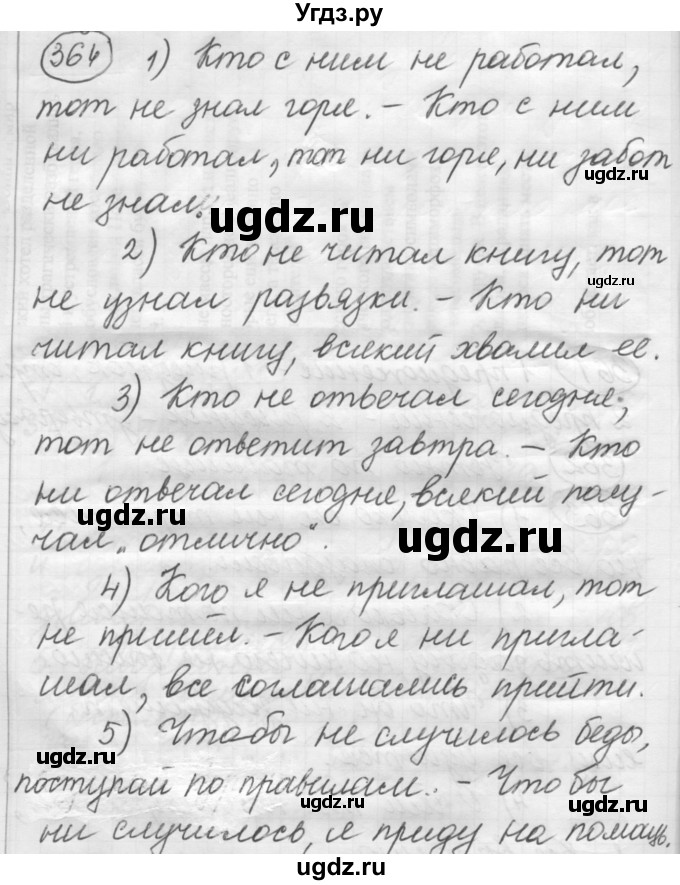 Угдз.ру
364 1) Кто с ним не работал,
тот не знал горя. – Кто с ним
ни работал, тот ни горя, ни забот
ugdz.ru
не знал.
ugdz.ru
2) Кто не читал книгу, тот
ugdz.ru
не узнал развязки. – Кто ни
читал книгу, всякий хвалил ее.
3) Кто не отвечал сегодня,
тот не ответит завтра. – Кто
ни отвечал сегодня, всякий полу-
ugdz.ru
чал „отлично“.
ugdz.ru
4) Кого я не приглашал, тот
не пришёл. – Кого я ни пригла-
шал, все соглашались прийти.
5) Чтобы не случилось беды,
ugdz.ru
поступай по правилам. – Что бы
ugdz.ru
ugdz.ru
ни случилось, я приду на помощь.
ugdz.ru